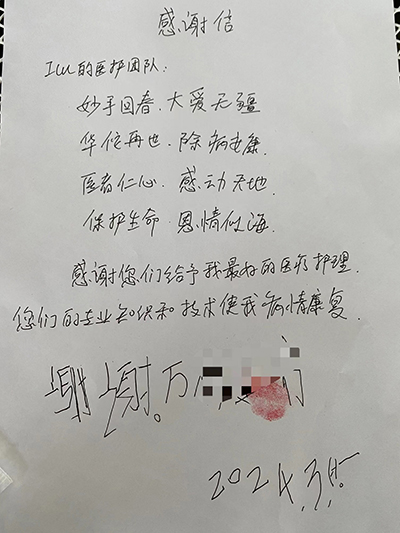 感谢信
Icu的医护团队:
妙手回春.大爱无疆
华佗再世.除病安康.
医者仁心.感动天地.
保护生命.恩情似海.
感谢您们给予我最好的医疗护理.
您们的专业知识和技术使我病情康复.
谢谢.万
2024.3.